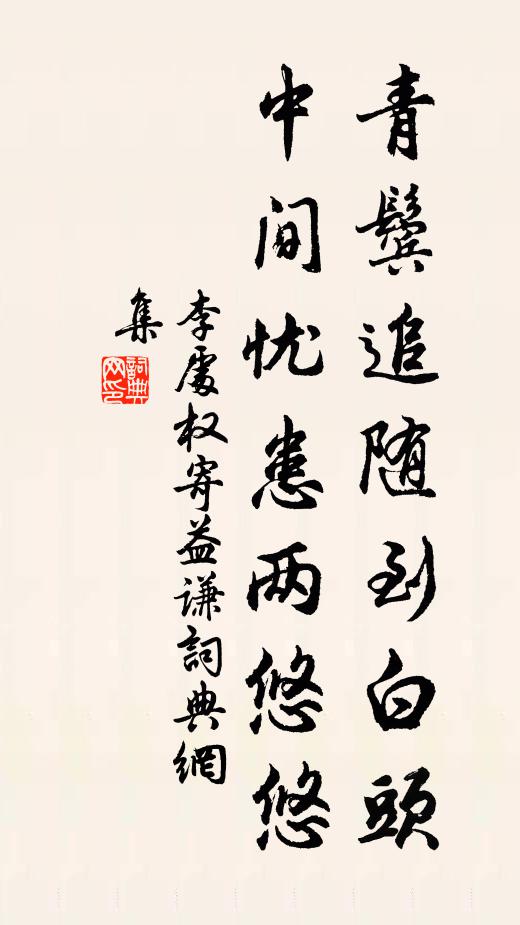 青鬓追随到白頭
中间忧患两悠悠
李處权寄益谦詞典網
集
詞典
网印